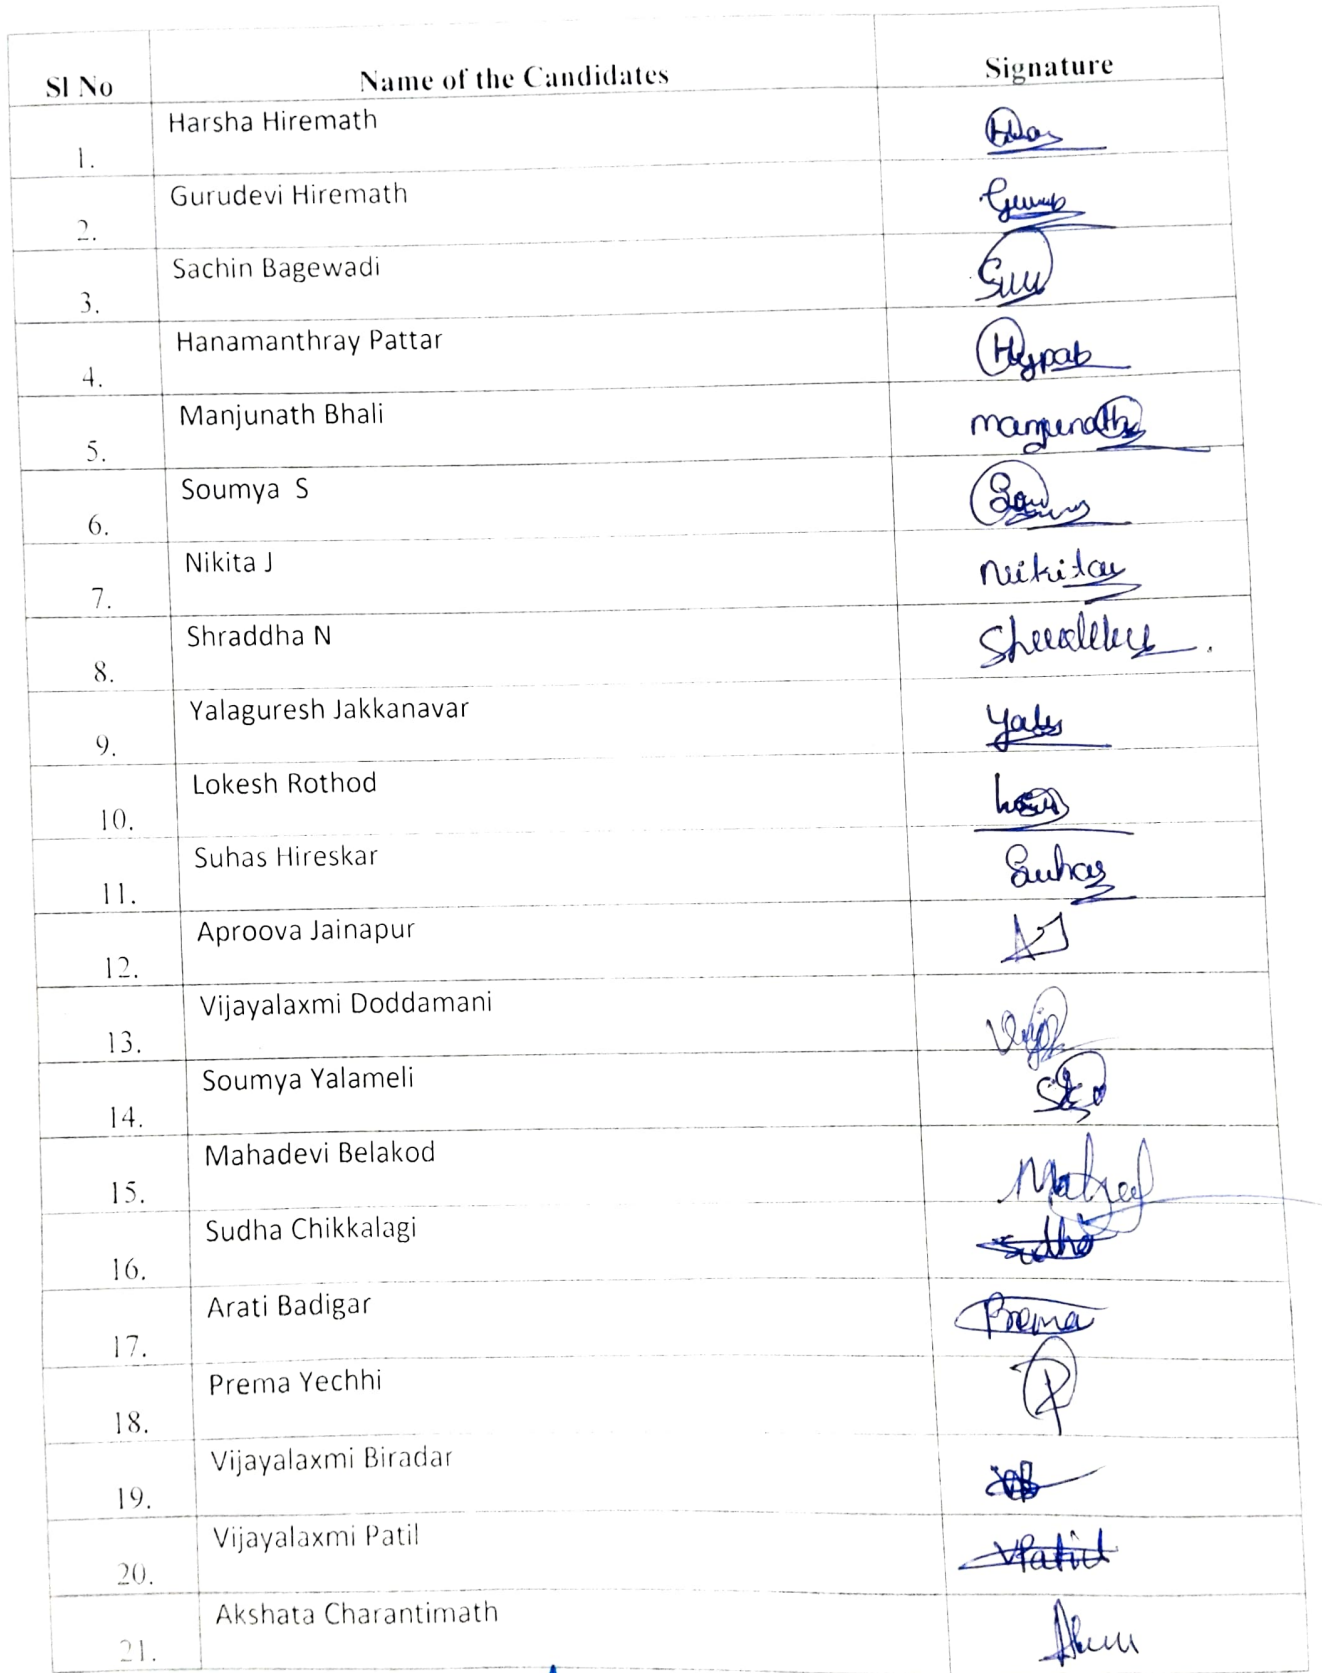 Sl No Name of the Candidates Signature
1. Harsha Hiremath
2. Gurudevi Hiremath
3. Sachin Bagewadi
4. Hanamanthray Pattar
5. Manjunath Bhali manjunath
6. Soumya S
7. Nikita J Nikita
8. Shraddha N
9. Yalaguresh Jakkanavar
10. Lokesh Rothod
11. Suhas Hireskar Suhas
12. Aproova Jainapur AJ
13. Vijayalaxmi Doddamani
14. Soumya Yalameli
15. Mahadevi Belakod
16. Sudha Chikkalagi Sudha
17. Arati Badigar Prema
18. Prema Yechhi
19. Vijayalaxmi Biradar
20. Vijayalaxmi Patil VPatil
21. Akshata Charantimath